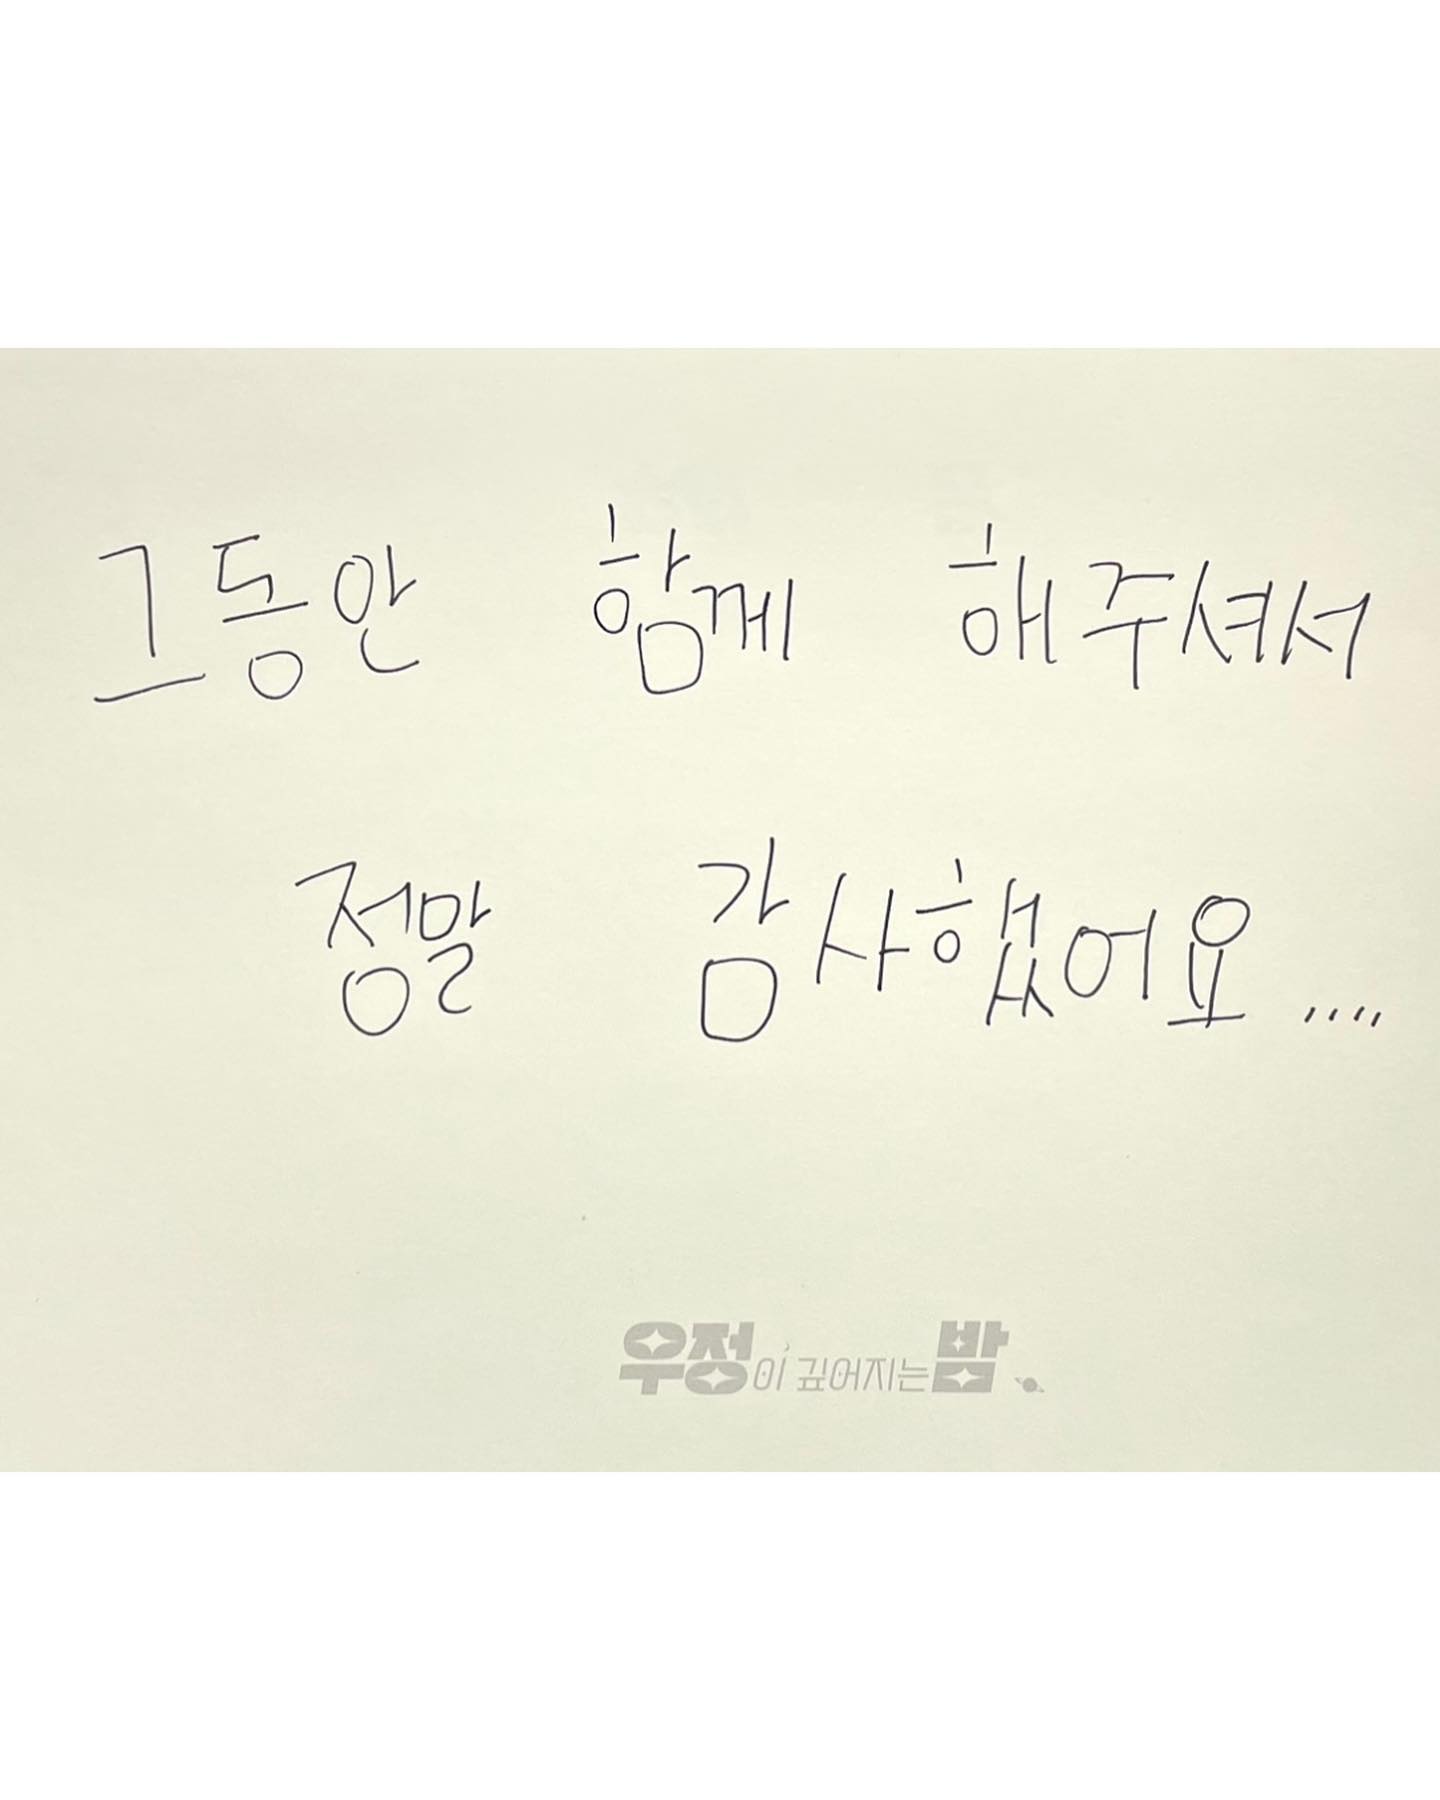 그동안 함께 해주셔서
정말 감사했어요....
우정이 깊어지는밤.